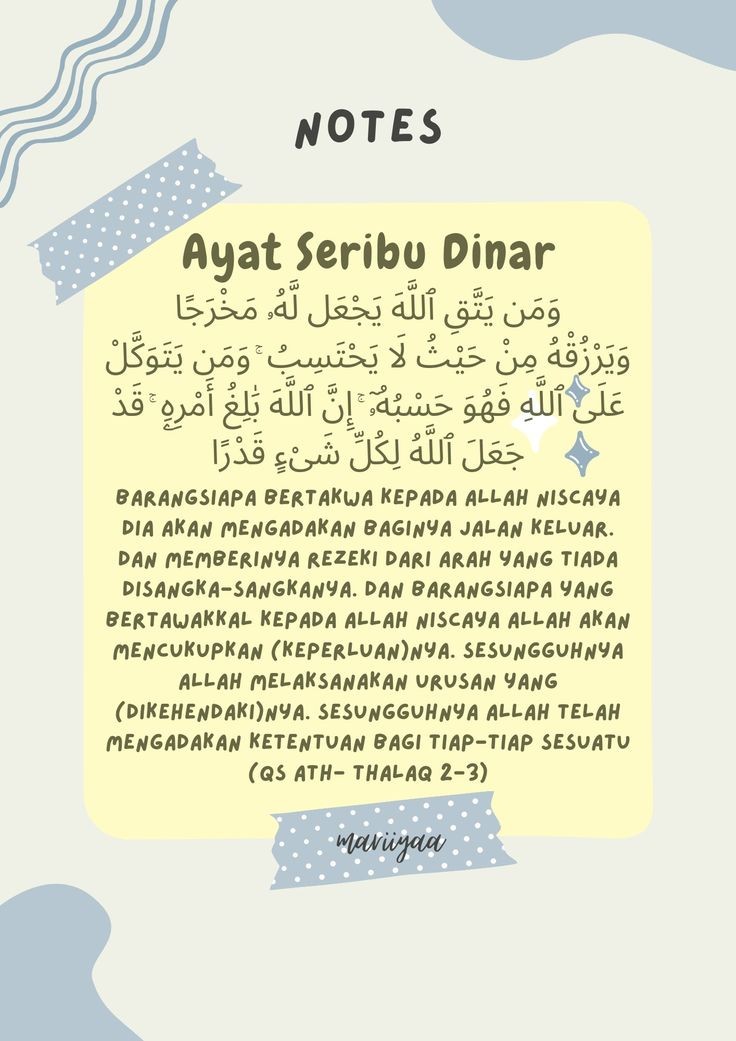 NOTES
Ayat Seribu Dinar
وَمَن يَتَّقِ ٱللَّهَ يَجْعَل لَّهُۥ مَخْرَجًا
وَيَرْزُقْهُ مِنْ حَيْثُ لَا يَحْتَسِبُ ۚ وَمَن يَتَوَكَّلْ
عَلَى ٱللَّهِ فَهُوَ حَسْبُهُۥٓ ۚ إِنَّ ٱللَّهَ بَٰلِغُ أَمْرِهِۦ ۚ قَدْ
جَعَلَ ٱللَّهُ لِكُلِّ شَىْءٍ قَدْرًا
BARANGSIAPA BERTAKWA KEPADA ALLAH NISCAYA
DIA AKAN MENGADAKAN BAGINYA JALAN KELUAR.
DAN MEMBERINYA REZEKI DARI ARAH YANG TIADA
DISANGKA-SANGKANYA. DAN BARANGSIAPA YANG
BERTAWAKKAL KEPADA ALLAH NISCAYA ALLAH AKAN
MENCUKUPKAN (KEPERLUAN)NYA. SESUNGGUHNYA
ALLAH MELAKSANAKAN URUSAN YANG
(DIKEHENDAKI)NYA. SESUNGGUHNYA ALLAH TELAH
MENGADAKAN KETENTUAN BAGI TIAP-TIAP SESUATU
(QS ATH- THALAQ 2-3)
mariiyaa